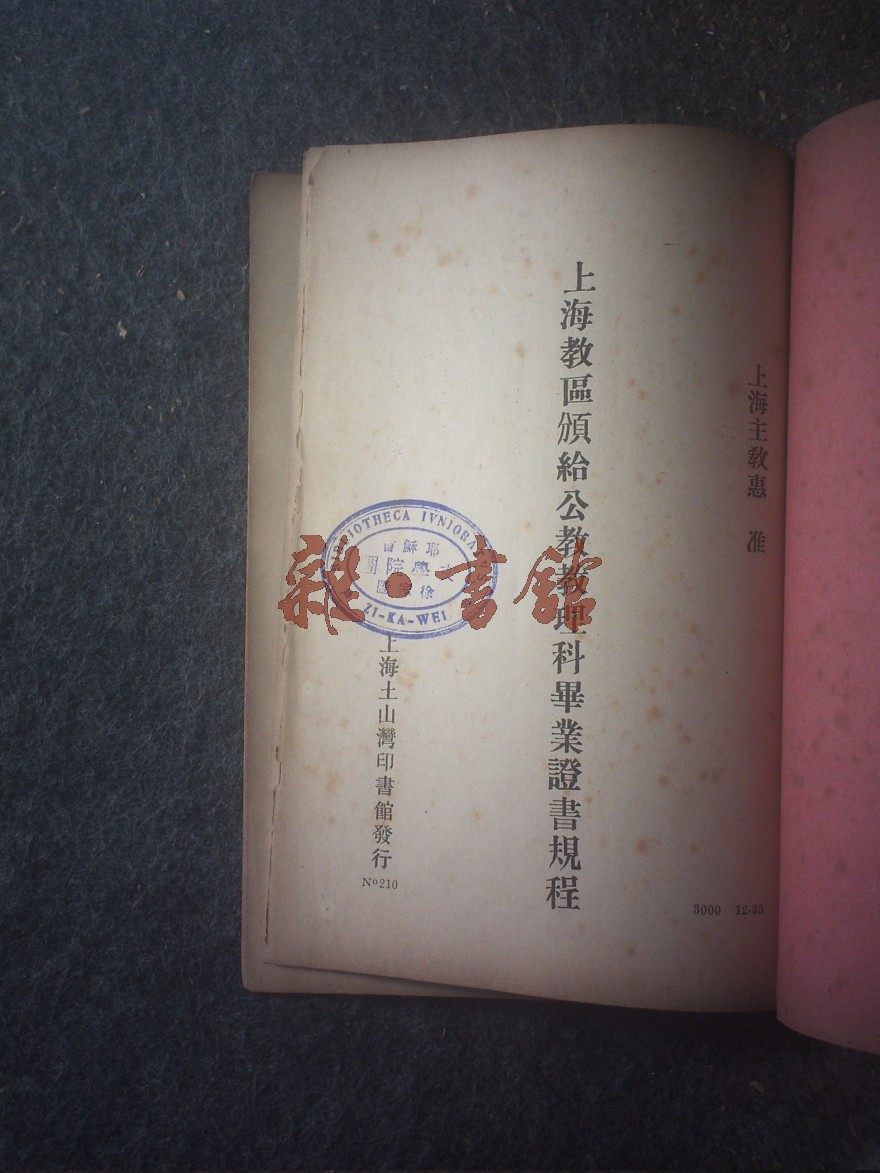 上海主教惠 准
3000 12-35
上海教區頒給公教教理科畢業證書規程
BIBLIOTHECA IVNIORA
耶穌會
文學院圖
徐家匯
ZI-KA-WEI
上海土山灣印書館發行
Nº210
雜·書館